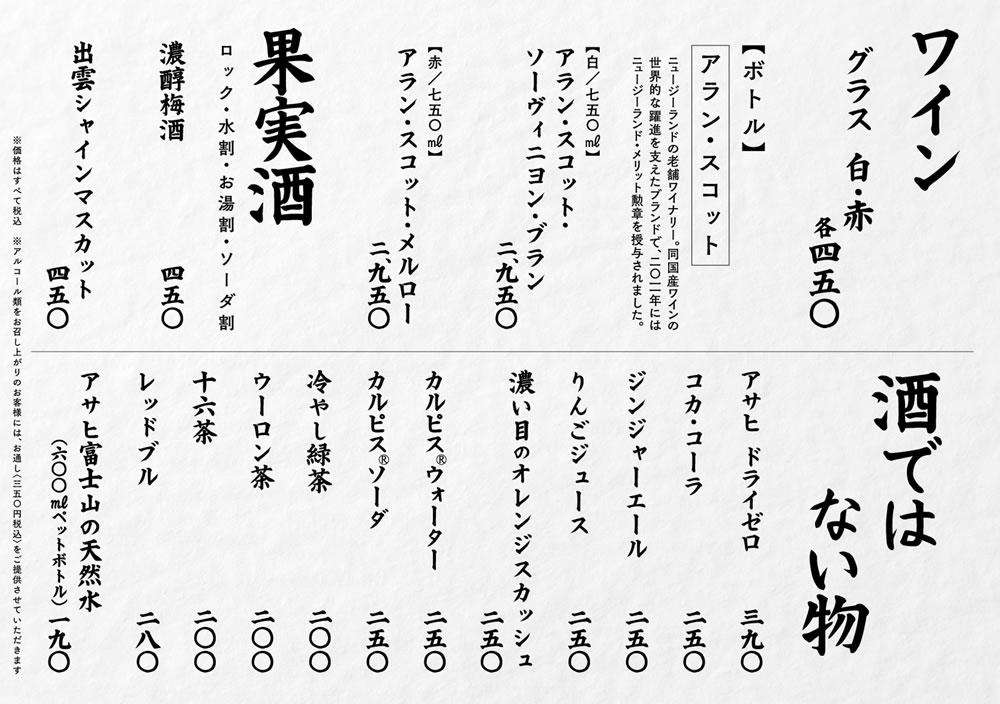 ワイン
グラス 白・赤
各四五〇
【ボトル】
アラン・スコット
ニュージーランドの老舗ワイナリー。同国産ワインの
世界的な躍進を支えたブランドで、二〇一一年には
ニュージーランド・メリット勲章を授与されました。
【白／七五〇㎖】
アラン・スコット・
ソーヴィニヨン・ブラン
二、九五〇
【赤／七五〇㎖】
アラン・スコット・メルロー
二、九五〇
果実酒
ロック・水割・お湯割・ソーダ割
濃醇梅酒 四五〇
出雲シャインマスカット
四五〇
酒では
ない物
アサヒ ドライゼロ 三九〇
コカ・コーラ 二五〇
ジンジャーエール 二五〇
りんごジュース 二五〇
濃い目のオレンジスカッシュ
二五〇
カルピス®ウォーター 二五〇
カルピス®ソーダ 二五〇
冷やし緑茶 二〇〇
ウーロン茶 二〇〇
十六茶 二〇〇
レッドブル 二八〇
アサヒ富士山の天然水
（六〇〇㎖ペットボトル） 一九〇
※価格はすべて税込 ※アルコール類をお召し上がりのお客様には、お通し（三五〇円税込）をご提供させていただきます